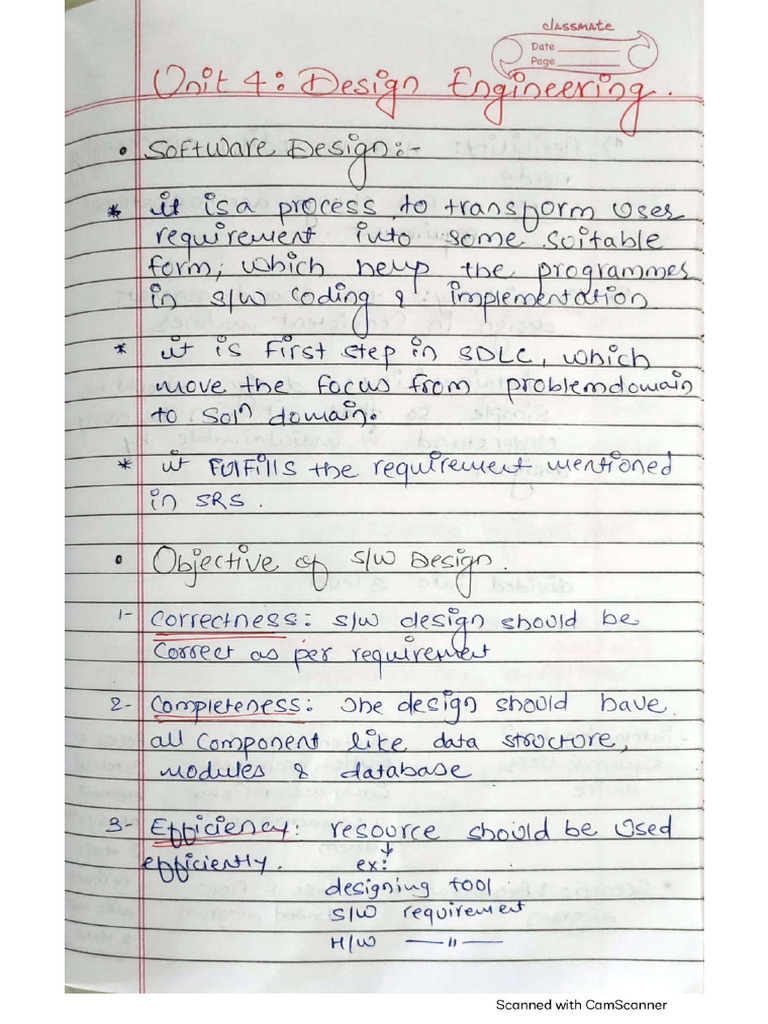 classmate
Date
Page
Unit 4: Design Engineering.
• Software Design:-
* it is a process to transform user
requirement into some suitable
form, which help the programmes
in S/W coding & implementation
* it is first step in SDLC, which
move the focus from problemdomain
to Solⁿ domain.
* it fulfills the requirement mentioned
in SRS.
• Objective of S/W Design.
1- Correctness: S/W design should be
correct as per requirement
2- Completeness: The design should have
all component like data structure,
modules & database
3- Efficiency: resource should be used
efficiently. ex:
designing tool.
S/W requirement
H/W —"—
Scanned with CamScanner